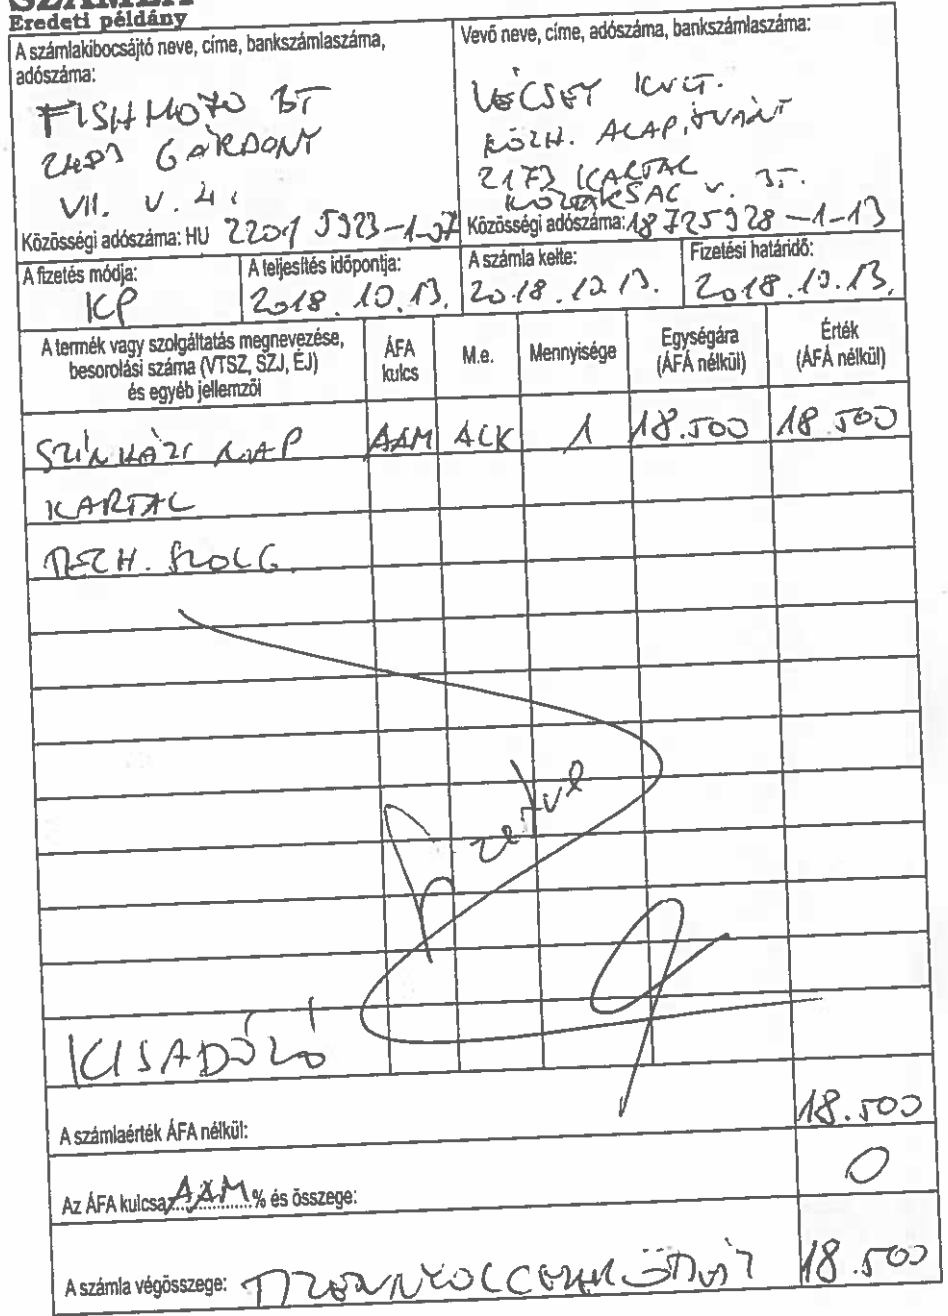 SZÁMLA
Eredeti példány
A számlakibocsájtó neve, címe, bankszámlaszáma,
adószáma:
FISHMOZO BT
2483 GÁRDONY
VII. U. 4.
Közösségi adószáma: HU 2201 5923-1-07
Vevő neve, címe, adószáma, bankszámlaszáma:
VÉCSEY KULT.
KÖZH. ALAPÍTVÁNY
2173 KARTAL
U. 35.
Közösségi adószáma: 18725928-1-13
A fizetés módja:
KP
A teljesítés időpontja:
2018.10.13.
A számla kelte:
2018.10.13.
Fizetési határidő:
2018.10.13.
A termék vagy szolgáltatás megnevezése,
besorolási száma (VTSZ, SZJ, ÉJ)
és egyéb jellemzői
ÁFA
kulcs
M.e.
Mennyisége
Egységára
(ÁFA nélkül)
Érték
(ÁFA nélkül)
SZÍNHÁZI NAP AAM ALK 1 18.500 18.500
KARTAL
TECH. SZOLG.
Fizetve
KISADÓZÓ
A számlaérték ÁFA nélkül: 18.500
Az ÁFA kulcsa AAM % és összege: 0
A számla végösszege: TIZENNYOLCEZERÖTSZÁZ 18.500